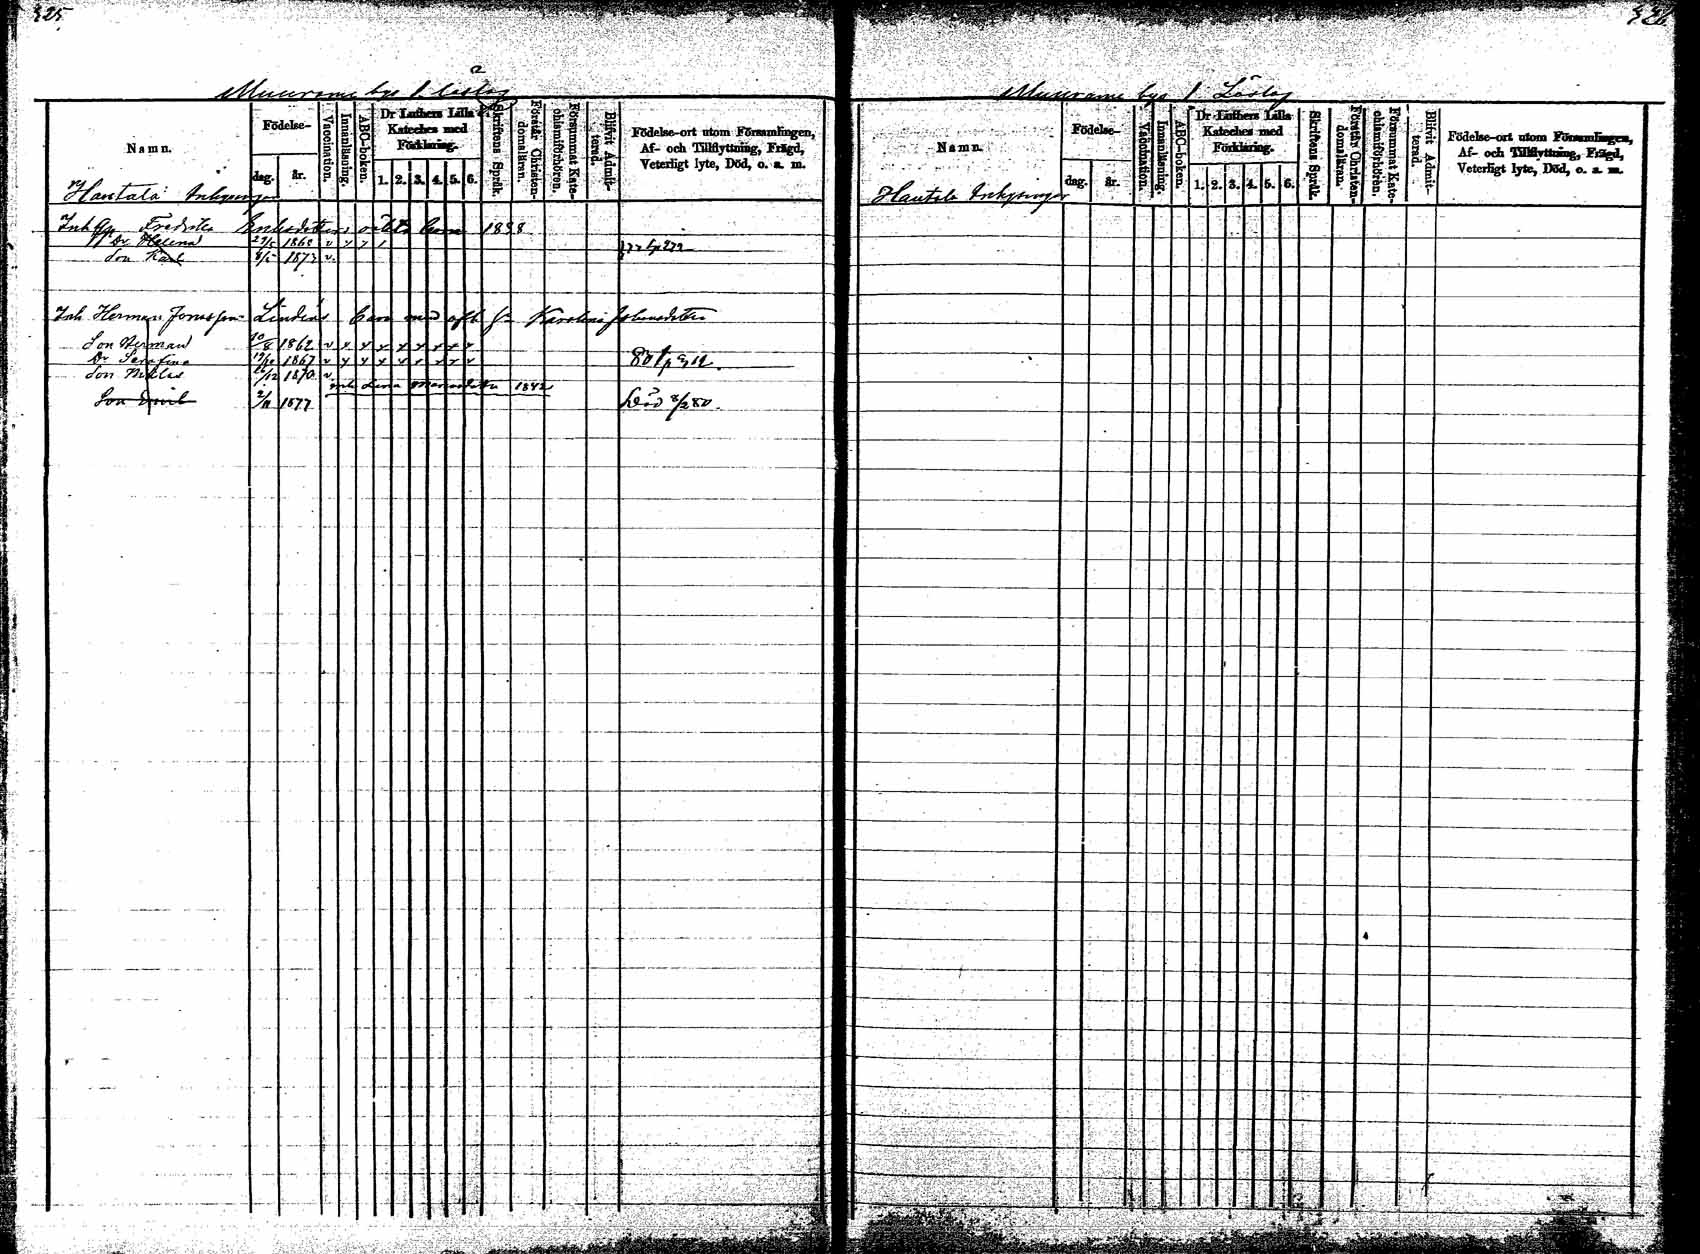 325
Muurame by 1 Läslag
Namn.
Födelse-
dag.
år.
Vaccination.
Innanläsning.
ABC-boken.
Dr Luthers Lilla
Kateches med
Förklaring.
1. 2. 3. 4. 5. 6.
Skriftens Språk.
Förstår Christen-
domsläran.
Försummat Kate-
chismiförhören.
Blifvit Admit-
terad.
Födelse-ort utom Församlingen,
Af- och Tillflyttning, Frägd,
Veterligt lyte, Död, o. a. m.
Hautala Inhysingar
Inh Fredrika Eriksdotters oäkta barn 1838
Dr Helena 1862 v
Son Karl 8/5 1877 v.
Inh Herman Jonasson Lindens barn med Karolina Johansdotter
Son Herman 1862 v
Dr Serafina 1867 v
Son Niklas 1870 v
Lena 1842
Son Emil 2/11 1877 Död 8/2 80.
326
Muurame by 1 Läslag
Namn.
Födelse-
dag.
år.
Vaccination.
Innanläsning.
ABC-boken.
Dr Luthers Lilla
Kateches med
Förklaring.
1. 2. 3. 4. 5. 6.
Skriftens Språk.
Förstår Christen-
domsläran.
Försummat Kate-
chismiförhören.
Blifvit Admit-
terad.
Födelse-ort utom Församlingen,
Af- och Tillflyttning, Frägd,
Veterligt lyte, Död, o. a. m.
Hautala Inhysingar